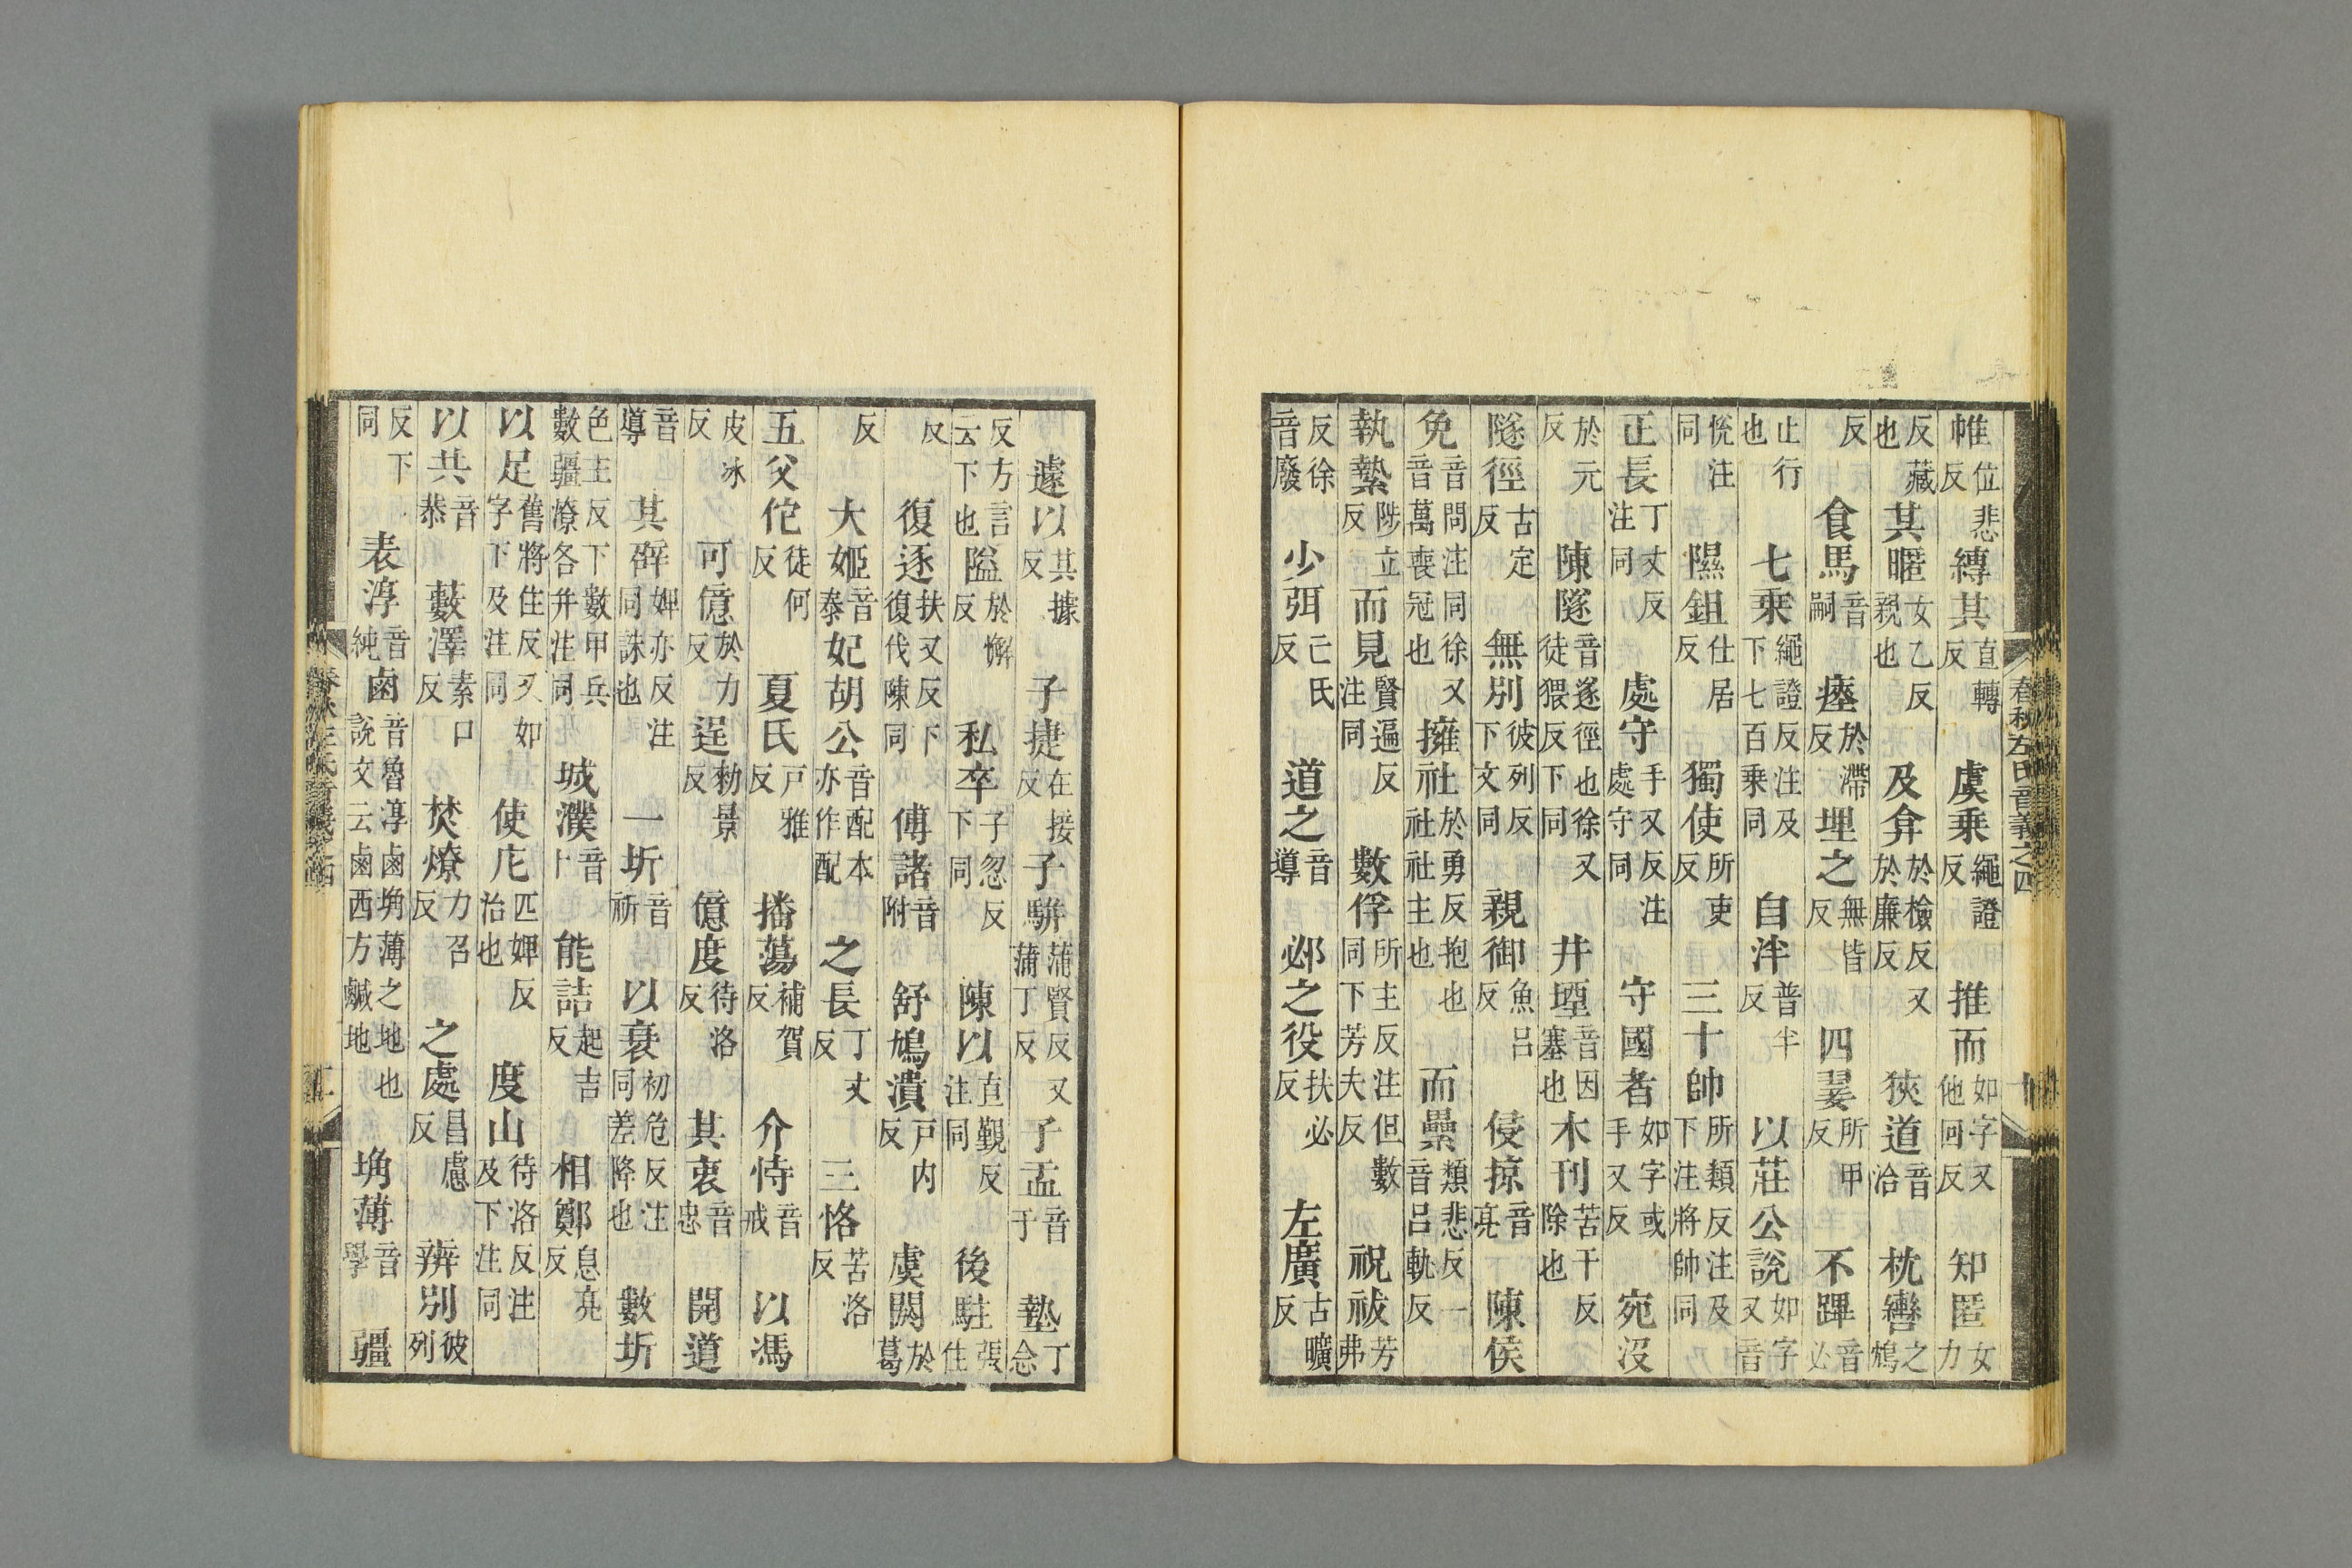 帷位悲反縳其直轉反虞乗繩證反推而如字又他回反知匿女力
反藏也其暱女乙反親也及弇於檢反又於廉反狹道音洽枕轡之鴆
反食馬音嗣瘞於滯反埋之無皆反四翣所甲反不蹕音必
止行也七乗繩證反注及下七百乗同自泮普半反以莊公說如字又音
悦注同隰鉏仕居反獨使所吏反三十帥所類反注及下注將帥同
正長丁丈反注同處守手又反注處守同守國者如字或手又反宛没
於元反陳隧音遂徑也徐又徒猥反下同井堙音因塞也木刊苦干反除也
隧徑古定反無别彼列反下文同親御魚呂反侵掠音亮陳侯
免音問注同徐又音萬喪冠也擁社於勇反抱社社主也而纍類悲反一音呂軌反
執縶陟立反而見賢遍反注同數俘所主反注但數同下芳夫反祝祓芳弗
反徐音廢少弭亡氏反道之音導邲之役扶必反左廣古曠反
春秋左氏音義之四
十
薳以其據反子捷在接反子騈蒲賢反又蒲丁反子盂音于墊丁念
反方言云下也隘於懈反私卒子忽反下同陳以直覲反注同後駐張住
反復逐扶又反下復伐陳同傅諸音附舒鳩潰戸内反虞閼於葛
反大姬音泰妃胡公音配本亦作配之長丁丈反三恪苦洛反
五父佗徒何反夏氏戸雅反播蕩補賀反介恃音戒以馮
皮冰反可億於力反逞勑景反億度待洛反其衷音忠開道
音導其辟婢亦反注同誅也一圻音祈以衰初危反注同差降也數圻
色主反下數甲兵數疆潦各并注同城濮音卜能詰起吉反相鄭息亮反
以足舊將住反又如字下及注同使庀匹婢反治也度山待洛反注及下注同
以共音恭藪澤素口反焚燎力召反之處昌慮反辨别彼列
反下同表淳音純鹵音魯淳鹵埆薄之地也説文云鹵西方鹹地埆薄音學疆